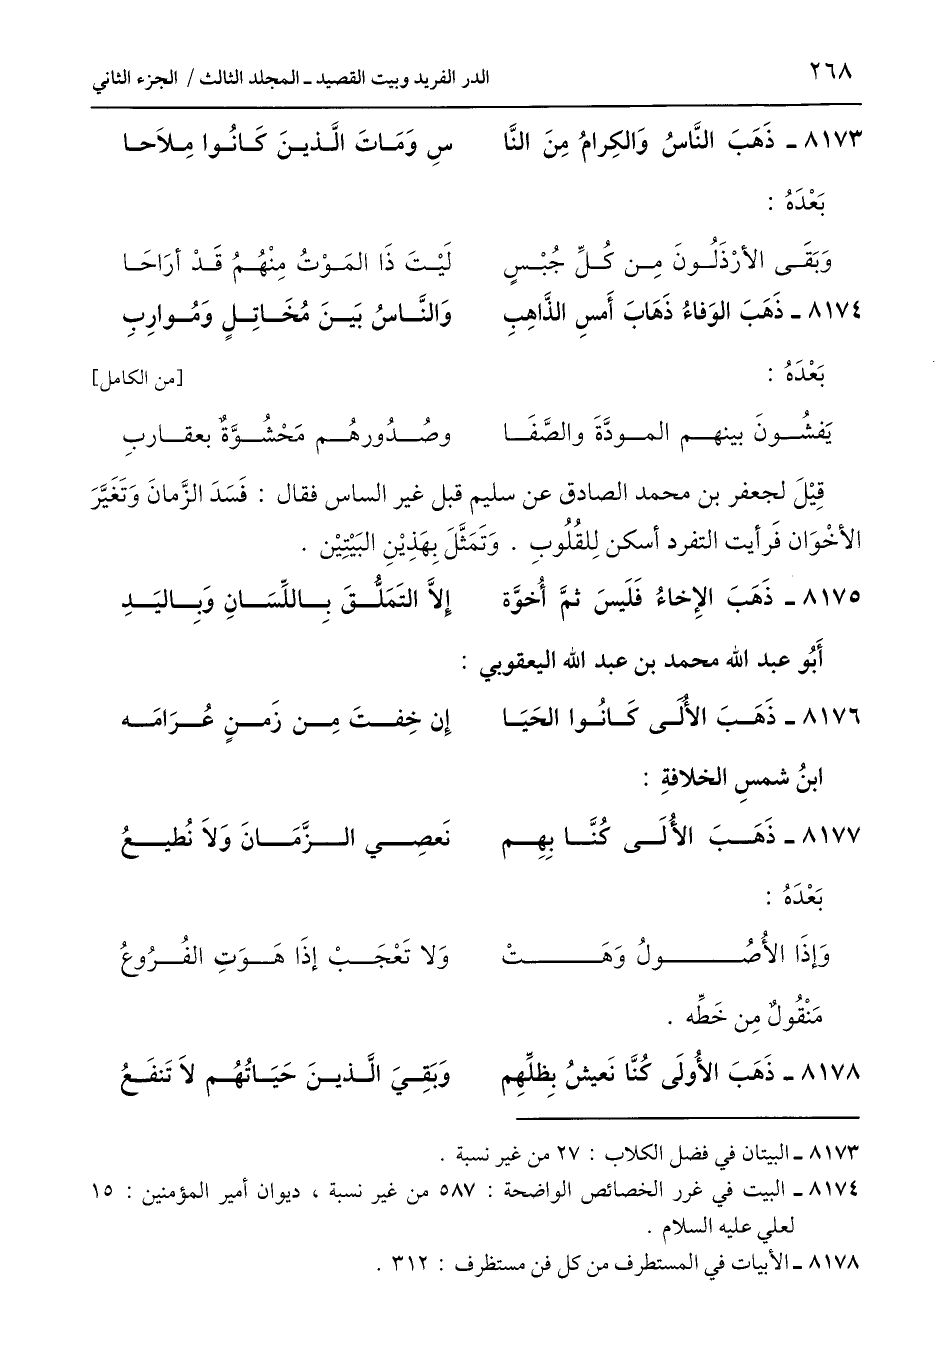 ٢٦٨ الدر الفريد وبيت القصيد ـ المجلد الثالث / الجزء الثاني
٨١٧٣ ـ ذَهَبَ النَّاسُ وَالكِرامُ مِنَ النَّا سِ وَمَاتَ الَّذينَ كَانُوا مِلاَحا
بَعْدَهُ :
وَبَقَى الأرْذَلُونَ مِن كُلِّ جُبْسٍ لَيْتَ ذَا المَوْتُ مِنْهُمُ قَدْ أرَاحَا
٨١٧٤ ـ ذَهَبَ الوَفاءُ ذهَابَ أمسِ الذَّاهِبِ وَالنَّاسُ بَينَ مُخَاتِلٍ وَمُوارِبِ
بَعْدَهُ : [من الكامل]
يَفشُونَ بينهم المودَّةَ والصَّفَا وصُدُورهُم مَحْشُوَّةٌ بعقاربِ
قِيْلَ لجعفر بن محمد الصادق عن سليم قبل غير الساس فقال : فَسَدَ الزَّمانَ وَتَغَيَّرَ
الأخْوَان فَرأيت التفرد أسكن لِلقُلُوبِ . وَتَمَثَّلَ بِهَذَيْنِ البَيْتَيْن .
٨١٧٥ ـ ذَهَبَ الإخاءُ فَلَيسَ ثمَّ أُخوَّة إلاَّ التَمَلُّقَ بِاللِّسَانِ وَبِاليَدِ
أَبُو عبد الله محمد بن عبد الله اليعقوبي :
٨١٧٦ ـ ذَهَبَ الأُلَى كَانُوا الحَيَا إن خِفتَ مِن زَمنٍ عُرَامَه
ابنُ شمسِ الخلافةِ :
٨١٧٧ ـ ذَهَبَ الأُلَى كُنَّا بِهِم نَعصِي الزَّمَانَ وَلاَ نُطيعُ
بَعْدَهُ :
وَإذَا الأُصُولُ وَهَتْ وَلا تَعْجَبْ إذَا هَوَتِ الفُروعُ
مَنْقُولٌ مِن خَطِّه .
٨١٧٨ ـ ذَهَبَ الأُولَى كُنَّا نَعيشُ بِظلِّهِم وَبَقِيَ الَّذينَ حَيَاتُهُم لاَ تَنفَعُ
٨١٧٣ ـ البيتان في فضل الكلاب : ٢٧ من غير نسبة .
٨١٧٤ ـ البيت في غرر الخصائص الواضحة : ٥٨٧ من غير نسبة ، ديوان أمير المؤمنين : ١٥
لعلي عليه السلام .
٨١٧٨ ـ الأبيات في المستطرف من كل فن مستظرف : ٣١٢ .